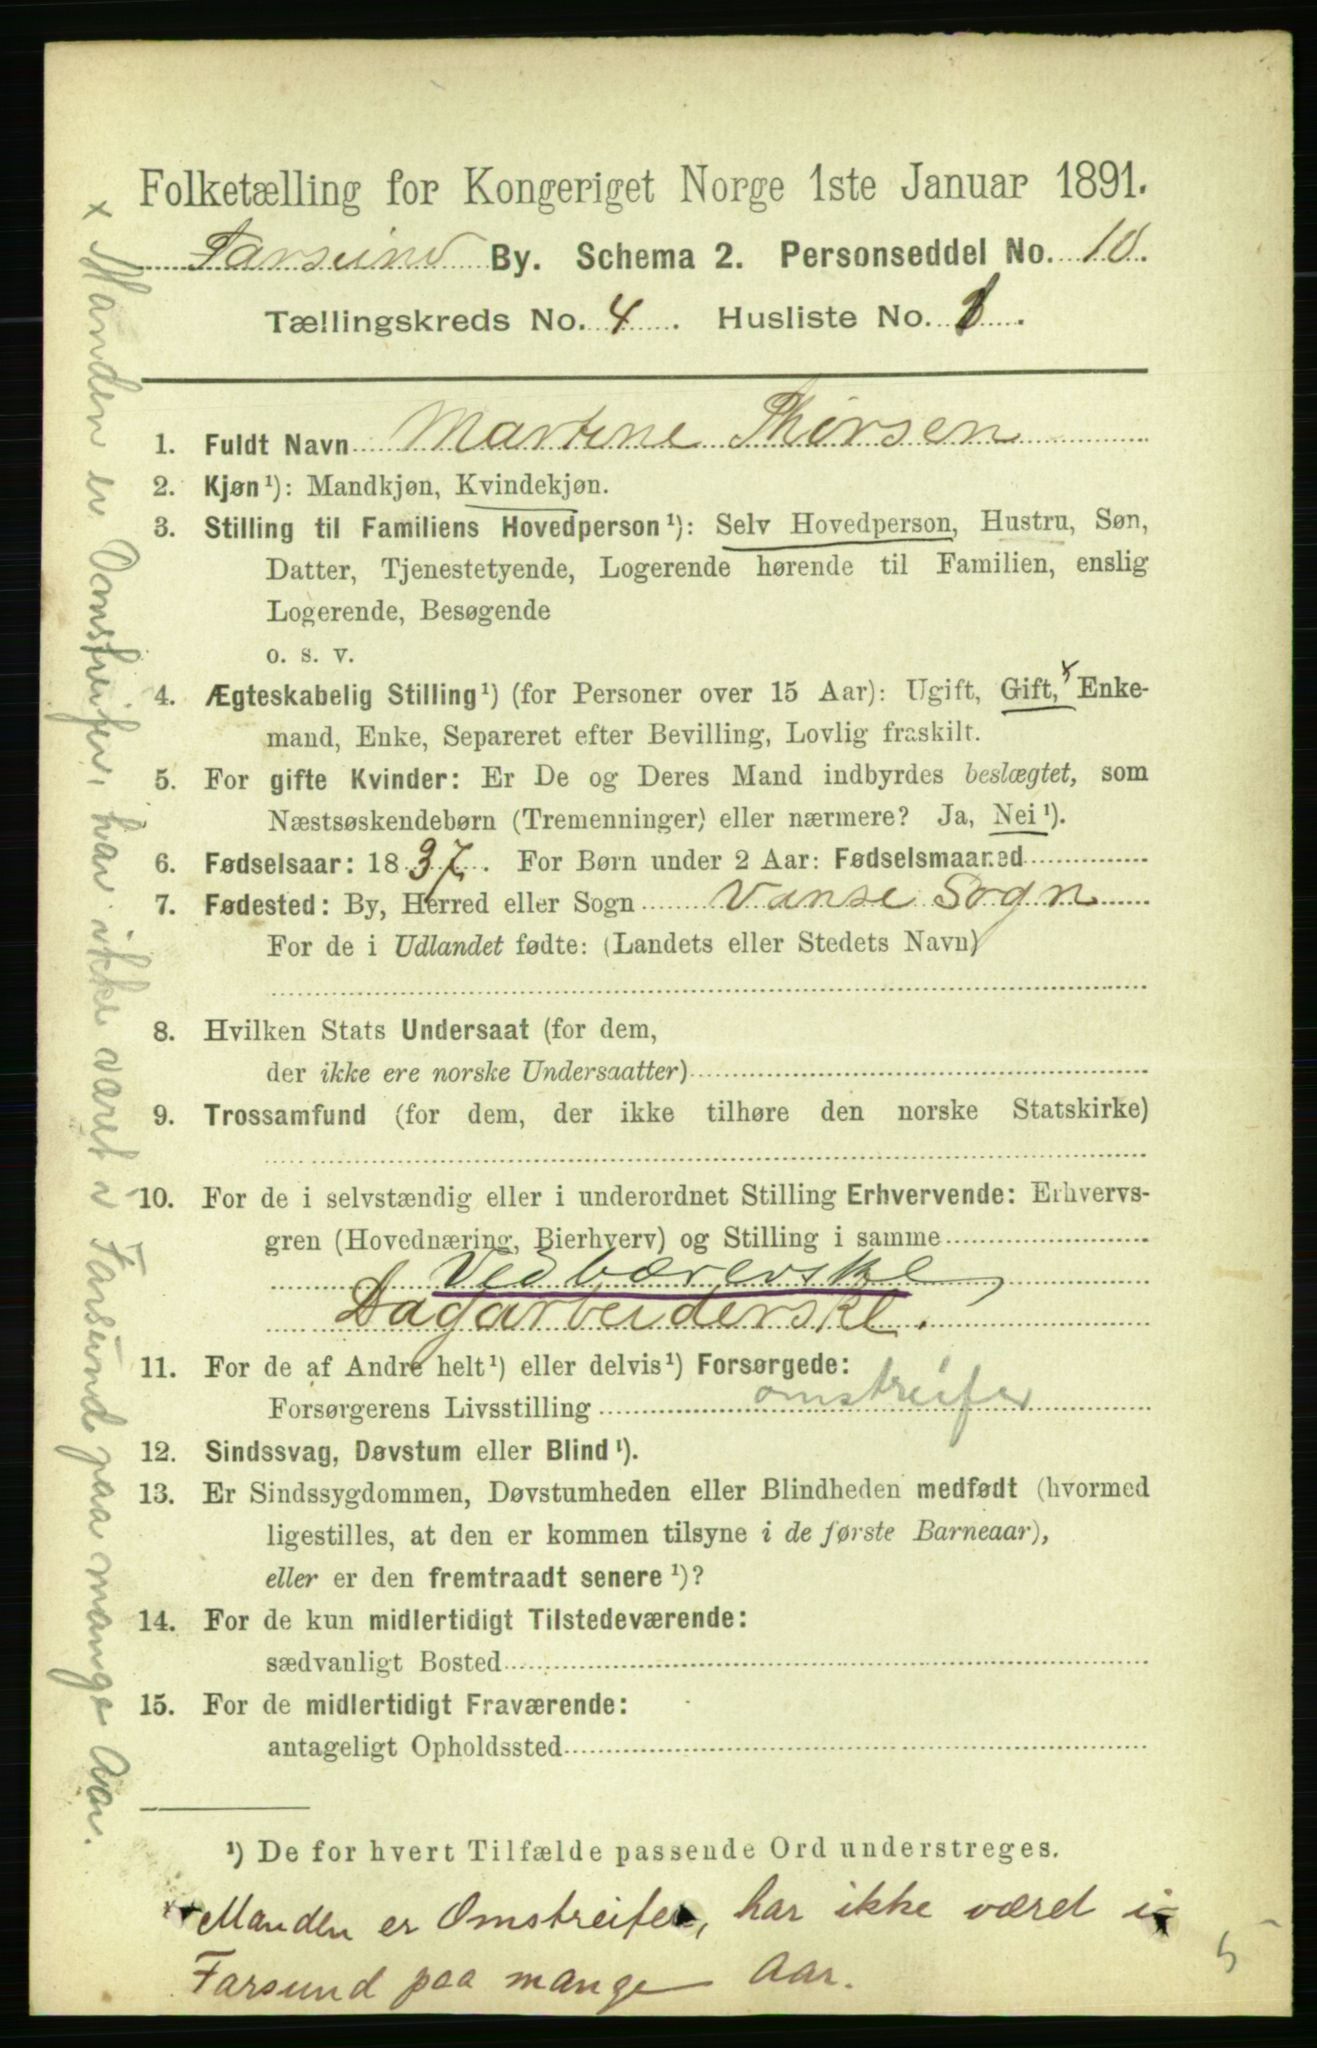 Folketælling for Kongeriget Norge 1ste Januar 1891.
Farsund By. Schema 2. Personseddel No. 10.
Tællingskreds No. 4. Husliste No. 1.
1. Fuldt Navn Martine Thorsen
2. Kjøn ¹): Mandkjøn, Kvindekjøn.
3. Stilling til Familiens Hovedperson ¹): Selv Hovedperson, Hustru, Søn,
Datter, Tjenestetyende, Logerende hørende til Familien, enslig
Logerende, Besøgende
o. s. v.
4. Ægteskabelig Stilling ¹) (for Personer over 15 Aar): Ugift, Gift, x Enke-
mand, Enke, Separeret efter Bevilling, Lovlig fraskilt.
5. For gifte Kvinder: Er De og Deres Mand indbyrdes beslægtet, som
Næstsøskendebørn (Tremenninger) eller nærmere? Ja, Nei ¹).
6. Fødselsaar: 1837. For Børn under 2 Aar: Fødselsmaaned
7. Fødested: By, Herred eller Sogn Vanse Sogn
For de i Udlandet fødte: (Landets eller Stedets Navn)
8. Hvilken Stats Undersaat (for dem,
der ikke ere norske Undersaatter)
9. Trossamfund (for dem, der ikke tilhøre den norske Statskirke)
10. For de i selvstændig eller i underordnet Stilling Erhvervende: Erhvervs-
gren (Hovednæring, Bierhverv) og Stilling i samme
Vedbærerske,
Dagarbeiderske.
11. For de af Andre helt ¹) eller delvis ¹) Forsørgede:
Forsørgerens Livsstilling omstreifer
12. Sindssvag, Døvstum eller Blind ¹).
13. Er Sindssygdommen, Døvstumheden eller Blindheden medfødt (hvormed
ligestilles, at den er kommen tilsyne i de første Barneaar),
eller er den fremtraadt senere ¹)?
14. For de kun midlertidigt Tilstedeværende:
sædvanligt Bosted
15. For de midlertidigt Fraværende:
antageligt Opholdssted
¹) De for hvert Tilfælde passende Ord understreges.
x Manden er Omstreifer, har ikke været i
Farsund paa mange Aar.
5
x Manden er Oomstreifer, har ikke været i Farsund paa mange Aar.